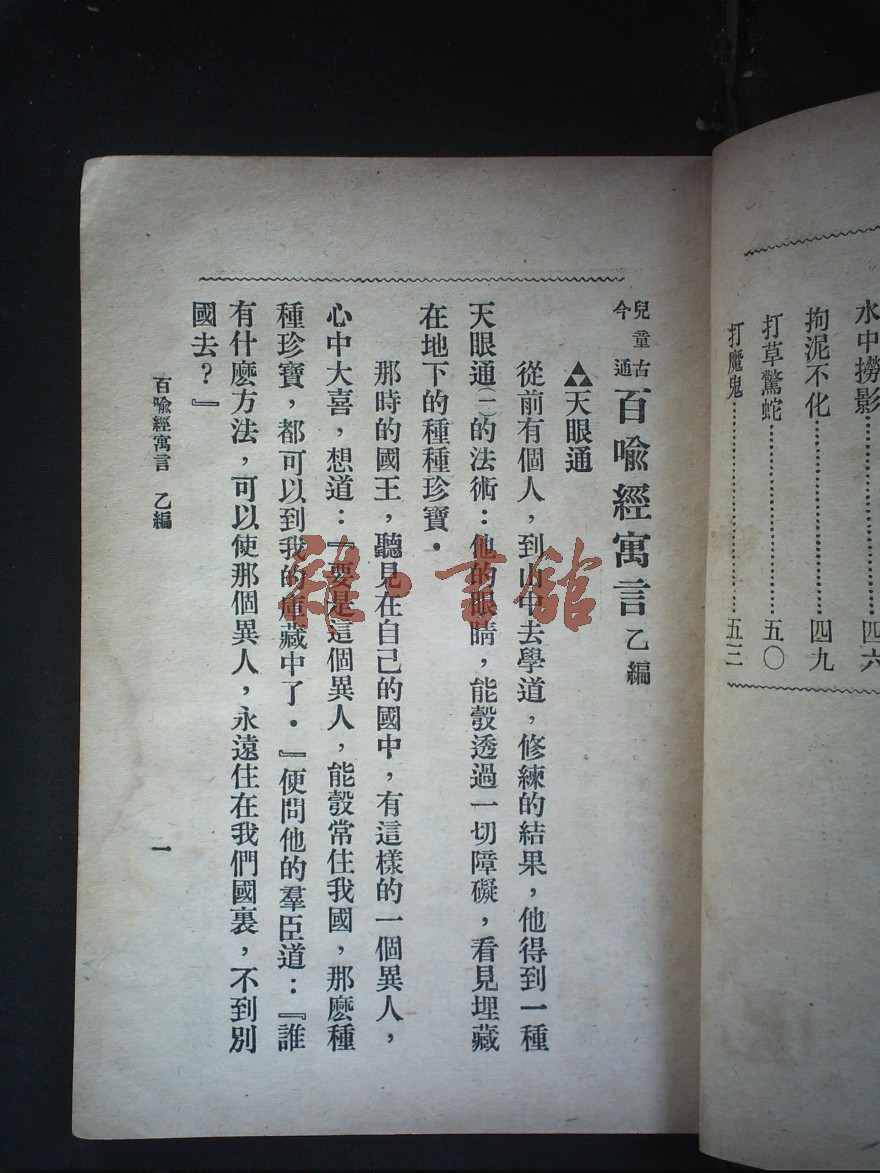 水中撈影……………………四六
拘泥不化……………………四九
打草驚蛇……………………五〇
打魔鬼………………………五三
兒童古今通
百喩經寓言 乙編
天眼通
從前有個人，到山中去學道，修練的結果，他得到一種
天眼通㈠的法術：他的眼睛，能彀透過一切障礙，看見埋藏
在地下的種種珍寶．
那時的國王，聽見在自己的國中，有這樣的一個異人，
心中大喜，想道：『要是這個異人，能彀常住我國，那麽種
種珍寶，都可以到我的庫藏中了．』便問他的羣臣道：『誰
有什麽方法，可以使那個異人，永遠住在我們國裏，不到別
國去？』
百喩經寓言 乙編
一
書館